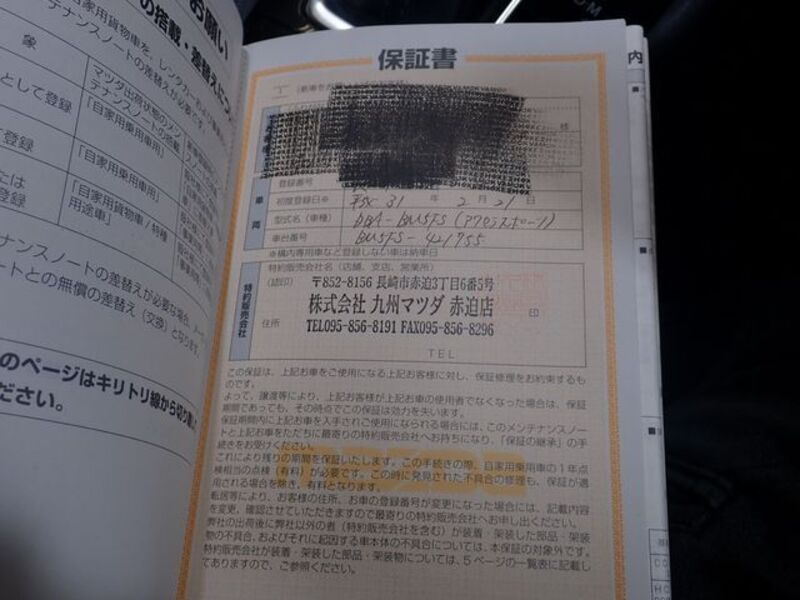 お願い
の搭載・差替えについ
自家用貨物車を、レンタカー、および
メンテナンスノートの差替えが必要です。
象
マツダ出荷状態のメン
テナンスノートの搭載
として登録
「自家用乗用車用」
登録
「自家用乗用車用」
たは
登録
「自家用貨物車/特種
用途車」
ナンスノートの差替えが必要な場合、
ートとの無償の差替え(交換)となります。
のページはキリトリ線から切り
ださい。
保証書
様
登録番号
車両
初度登録日※
31 年 2 月 21 日
型式名(車種)
DBA-BM5FS (アクセラスポーツ)
車台番号
BM5FS-421755
※構内専用車など登録しない車は納車日
特約販売会社
特約販売会社名(店舗、支店、営業所)
(認印)
〒852-8156 長崎市赤迫3丁目6番5号
株式会社 九州マツダ 赤迫店
印
住所
TEL095-856-8191 FAX095-856-8296
TEL
この保証は、上記お車をご使用になる上記お客様に対し、保証修理をお約束するも
のです。
よって、譲渡等により、上記お客様が上記お車の使用者でなくなった場合は、保証
期間であっても、その時点でこの保証は効力を失います。
保証期間内に上記お車を入手されご使用になられる場合には、このメンテナンスノー
トと上記お車をただちに最寄りの特約販売会社へお持ちになり、「保証の継承」の手
続きをお受けください。
これにより残りの期間を保証いたします。この手続きの際、自家用乗用車の1年点
検相当の点検(有料)が必要です。この時に発見された不具合の修理も、保証が適
用される場合を除き、有料となります。
転居等により、お客様の住所、お車の登録番号が変更になった場合には、記載内容
を変更、確認させていただきますので最寄りの特約販売会社へお申し出ください。
弊社の出荷後に弊社以外の者(特約販売会社を含む)が装着・架装した部品・架装
物の不具合、およびそれに起因する車本体の不具合については、本保証の対象外です。
特約販売会社が装着・架装した部品・架装物については、5ページの一覧表に記載し
てありますので、ご参照ください。
内